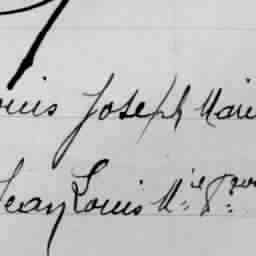 ouis Joseph Mari
Jean Louis M.ie